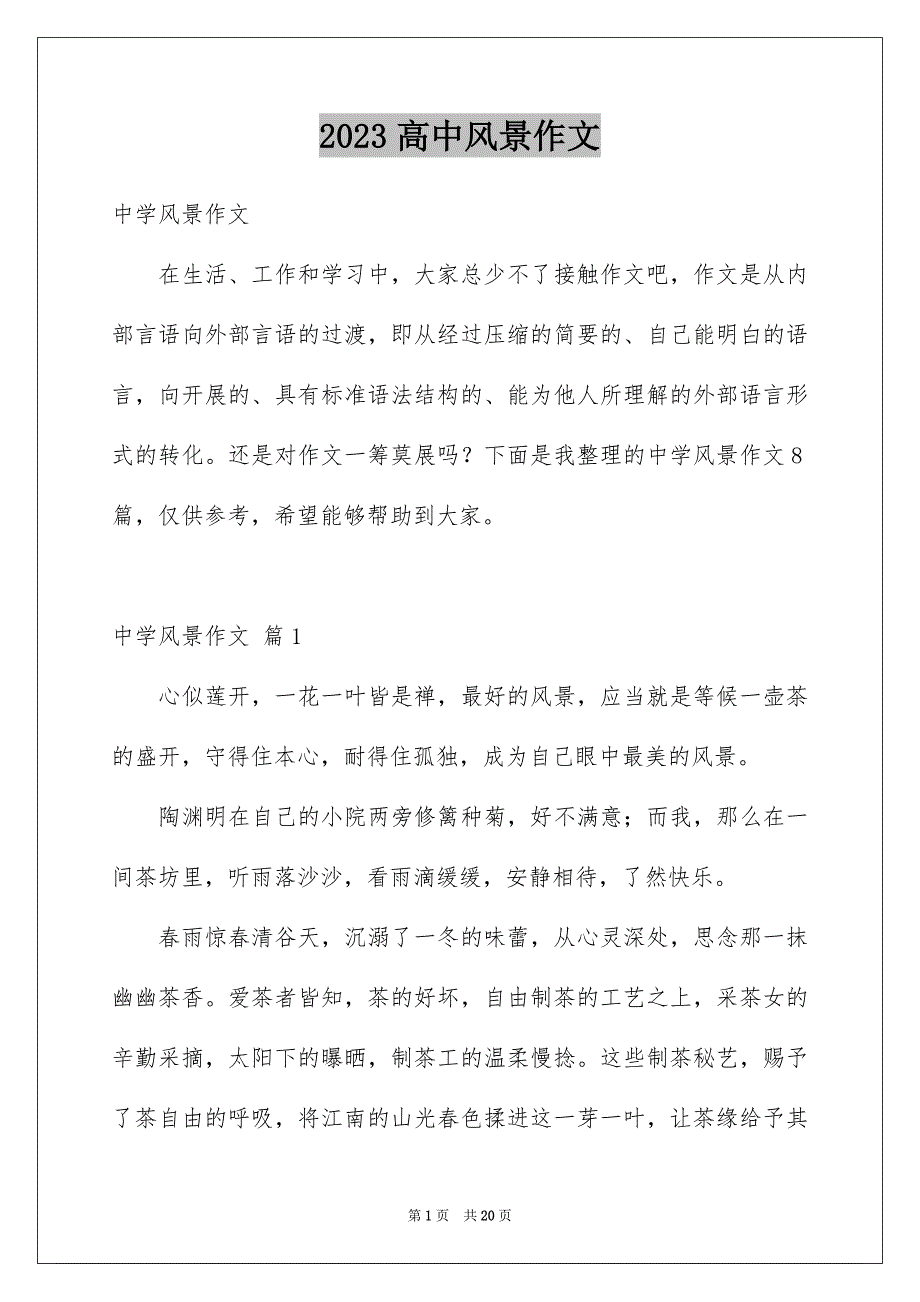 2023高中风景作文
中学风景作文
在生活、工作和学习中，大家总少不了接触作文吧，作文是从内
部言语向外部言语的过渡，即从经过压缩的简要的、自己能明白的语
言，向开展的、具有标准语法结构的、能为他人所理解的外部语言形
式的转化。还是对作文一筹莫展吗？下面是我整理的中学风景作文8
篇，仅供参考，希望能够帮助到大家。
中学风景作文 篇1
心似莲开，一花一叶皆是禅，最好的风景，应当就是等候一壶茶
的盛开，守得住本心，耐得住孤独，成为自己眼中最美的风景。
陶渊明在自己的小院两旁修篱种菊，好不满意；而我，那么在一
间茶坊里，听雨落沙沙，看雨滴缓缓，安静相待，了然快乐。
春雨惊春清谷天，沉溺了一冬的味蕾，从心灵深处，思念那一抹
幽幽茶香。爱茶者皆知，茶的好坏，自由制茶的工艺之上，采茶女的
辛勤采摘，太阳下的曝晒，制茶工的温柔慢捻。这些制茶秘艺，赐予
了茶自由的呼吸，将江南的山光春色揉进这一芽一叶，让茶缘给予其
第1页 共20页